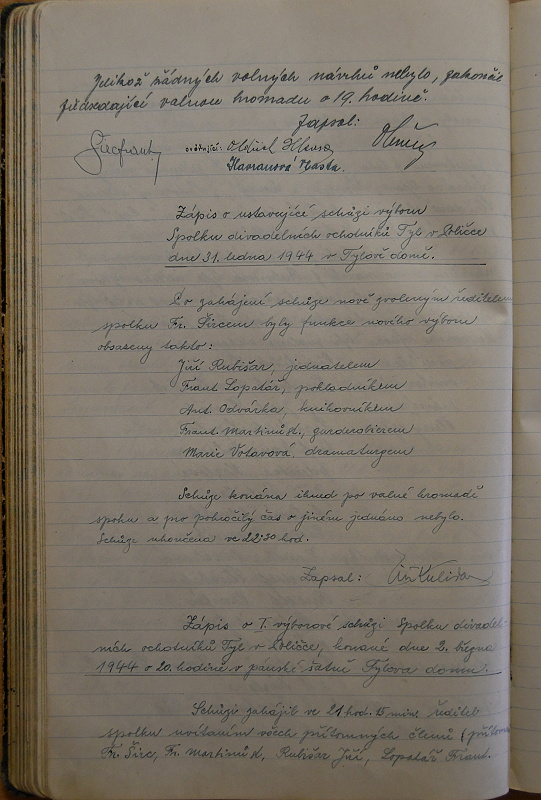 Jelikož žádných volných návrhů nebylo, zakončil
předsedající valnou hromadu o 19. hodině.
Zapsal:
ověřující: Oldřich
Havranová Vlasta.
Zápis o ustavující schůzi výboru
Spolku divadelních ochotníků Tyl v Poličce
dne 31. ledna 1944 v Tylově domě.
Po zahájení schůze nově zvoleným ředitelem
spolku Fr. Šircem byly funkce nového výboru
obsazeny takto:
Jiří Kubišar, jednatelem
Frant. Lopatář, pokladníkem
Ant. Odvárka, knihovníkem
Frant. Martinů st., garderobierem
Marie Votavová, dramaturgem
Schůze konána ihned po valné hromadě
spolu a pro pokročilý čas o jiném jednáno nebylo.
Schůze ukončena ve 22:30 hod.
Zapsal:
Zápis o I. výborové schůzi Spolku divadel-
ních ochotníků Tyl v Poličce, konané dne 2. března
1944 o 20. hodině v pánské šatně Tylova domu.
Schůzi zahájil ve 21 hod. 15 min. ředitel
spolku uvítáním všech přítomných členů (
Fr. Širc, Fr. Martinů st., Kubišar Jiří, Lopatář Frant.